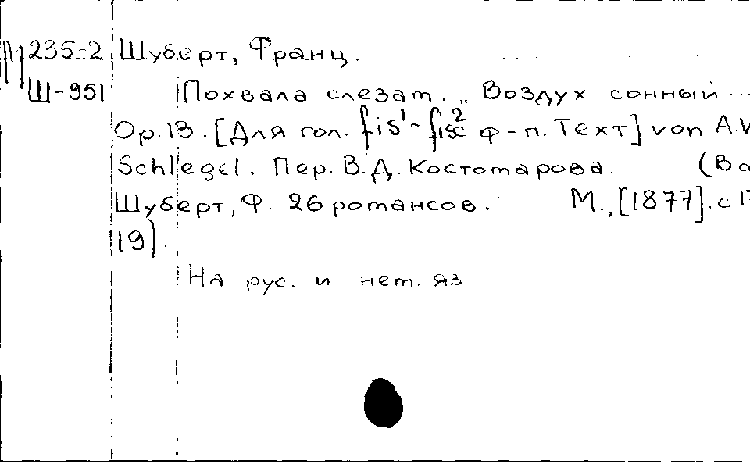 П1 235-2 Шуберт, Франц.
Ш-951 Похвала слезам. „Воздух сонный...
Op.13. [Для гол. fis¹-fis² с ф-п. Текст] von A.W
Schlegel. Пер. В.Д. Костомарова. (В
Шуберт, Ф. 26 романсов. М., [1877]. с 1
19].
На рус. и нем. яз